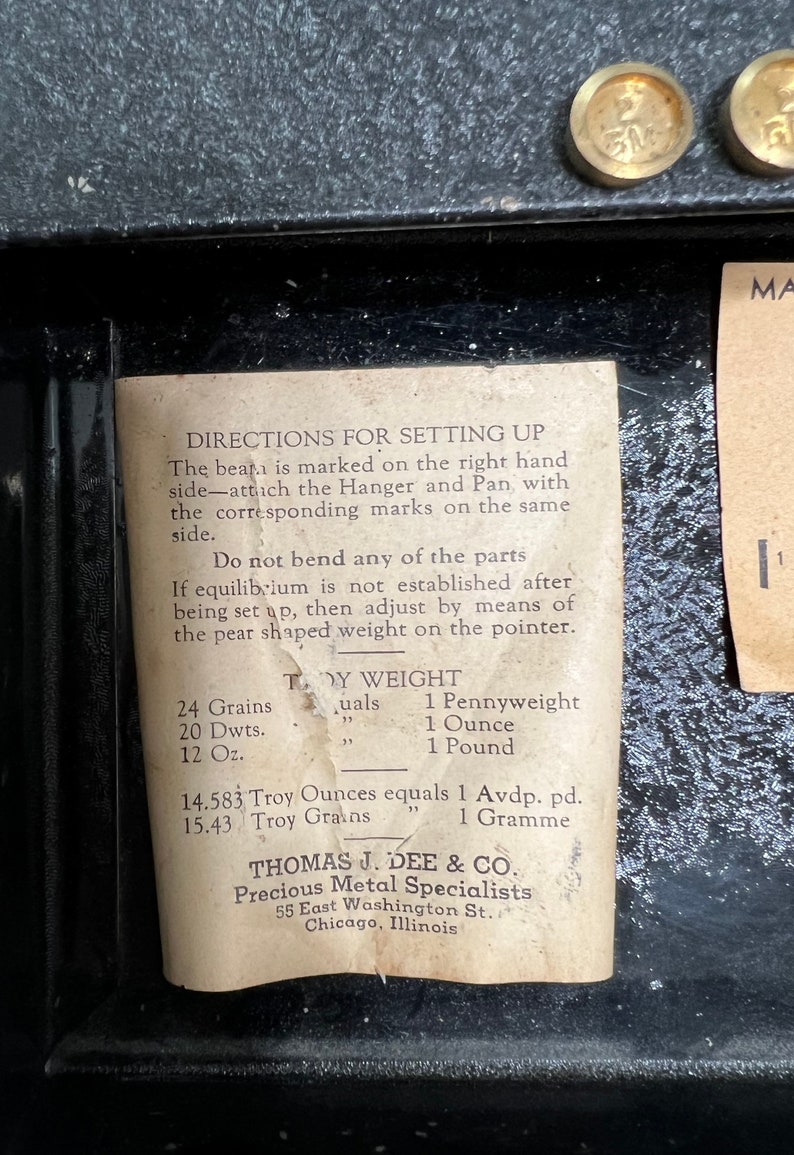 2
GM
MA
DIRECTIONS FOR SETTING UP
The beam is marked on the right hand
side—attach the Hanger and Pan with
the corresponding marks on the same
side.
Do not bend any of the parts
If equilibrium is not established after
being set up, then adjust by means of
the pear shaped weight on the pointer.
TROY WEIGHT
24 Grains equals 1 Pennyweight
20 Dwts. " 1 Ounce
12 Oz. " 1 Pound
14.583 Troy Ounces equals 1 Avdp. pd.
15.43 Troy Grains " 1 Gramme
THOMAS J. DEE & CO.
Precious Metal Specialists
55 East Washington St.
Chicago, Illinois
1